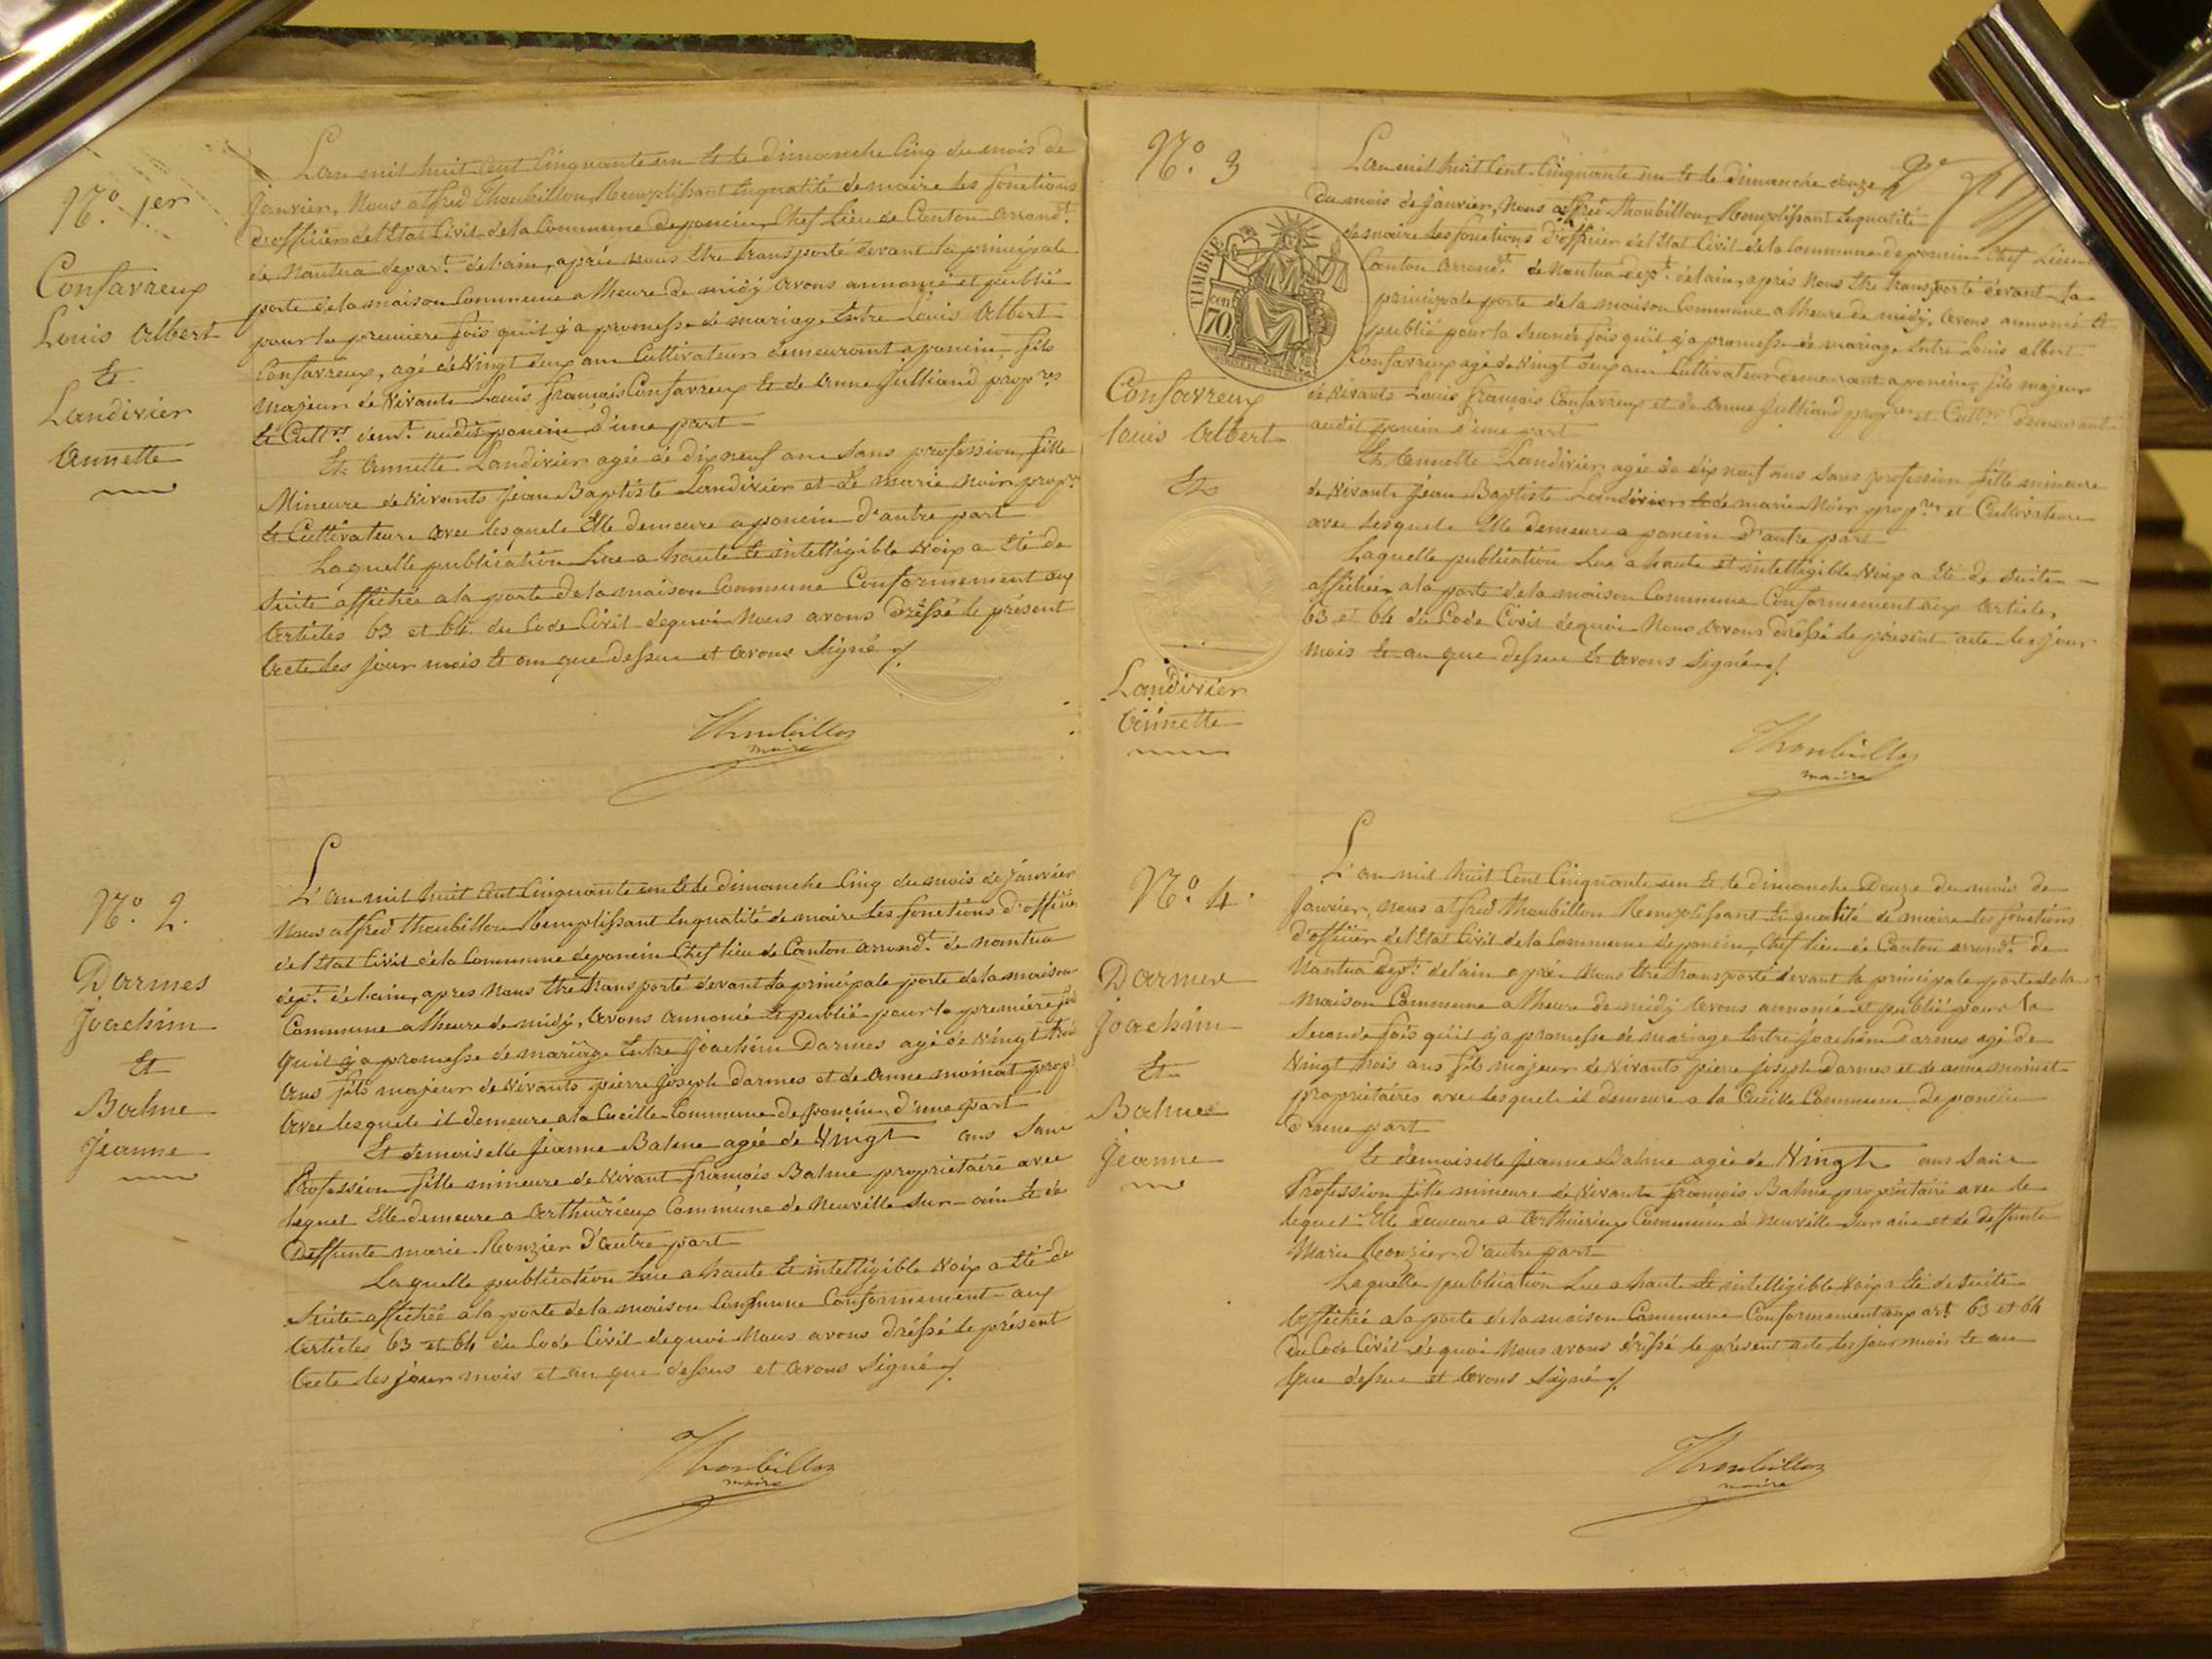 N.º 1er
Confavreux
Louis Albert
Et
Landivier
Annette
L'an mil huit Cent Cinquante un Et le Dimanche Cinq du mois de
Janvier, Nous alfred Thoubillon, Remplissant Enqualité demaire les fonctions
d'officier del'Etat Civil dela Commune deponcin, Chef Lieu de Canton arrond.t
de Nantua depar.t delain, après nous Etre transporté devant la principale
porte delamaison Commune a lheure de midy avons annoncé et publié
pour la premiere fois quil y a promesse de mariage Entre Louis Albert
Confavreux, agé de Vingt deux ans Cultivateur demeurant a poncin, fils
majeur de Vivants Louis françois Confavreux Et de Anne Julliand prop.res
Et Cult.rs dem.t audit poncin d'une part
Et Annette Landivier agée de dix neuf ans sans profession, fille
Mineure de Vivants Jean Baptiste Landivier et de marie noir prop.rs
Et Cultivateurs avec lesquels Elle demeure a poncin d'autre part
Laquelle publication Lue a haute Et intelligible Voix a Eté de
suite affichée a la porte dela maison Commune Conformement aux
Articles 63 et 64 du Code Civil dequoi Nous avons dréssé le présent
Acte les jour mois Et an que dessus et Avons Signé ./.
Thoubillon
maire
N.º 2.
Darmes
Joachim
Et
Balme
Jeanne
L'an mil huit Cent Cinquante un Et le Dimanche Cinq du mois de janvier
Nous alfred Thoubillon Remplissant Enqualité de maire les fonctions d'officier
del'Etat Civil dela Commune deponcin Chef lieu de Canton arrond.t de nantua
dép.t delain, apres Nous Etre transporté devant la principale porte dela maison
Commune a lheure de midy, Avons annoncé Et publié pour la première fois
quil y a promesse de mariage Entre Joachim Darmes agé de Vingt trois
ans fils majeur de Vivants pierre Joseph Darmes et de Anne moinat prop.
Avec lesquels il demeure a la Cueille Commune De poncin, d'une part
Et demoiselle Jeanne Balme agée de Vingt ans sans
Profession fille mineure de Vivant françois Balme propriétaire avec
lequel Elle demeure a Arthuirieux Commune de Neuville sur-ain Et de
Deffunte marie Ronzier D'autre part
Laquelle publication Lue a haute Et intelligible Voix a Eté de
Suite affichée a la porte de la maison Commune Conformement aux
Articles 63 et 64 du Code Civil dequoi Nous avons dréssé le présent
Acte les jour mois et an que dessus et Avons Signé ./.
Thoubillon
maire
N.º 3
TIMBRE
cen
70
Confavreux
louis Albert
Et
Landivier
Annette
L'an mil huit Cent Cinquante un Et le Dimanche douze
Du mois de Janvier, Nous alfred Thoubillon, Remplissant Enqualité
de maire les fonctions d'officier del'Etat Civil dela Commune deponcin Chef Lieu
Canton arrond.t de Nantua dep.t delain, après Nous Etre transporté devant la
principale porte dela maison Commune a lheure de midy, Avons annoncé Et
publié pour la Seconde fois quil y a promesse de mariage Entre Louis albert
Confavreux agé de Vingt deux ans Cultivateur demeurant a poncin, fils majeur
de Vivants Louis François Confavreux et de Anne Julliand prop.res et Cult.rs demeurant
audit poncin d'une part
Et Annette Landivier, agée de dix neuf ans sans profession fille mineure
de Vivants Jean Baptiste Landivier Et de marie Noir prop.res et Cultivateurs
avec lesquels Elle demeure a poncin D'autre part
Laquelle publication Lue a haute et intelligible Voix a Eté de suite
affichée a la porte dela maison Commune Conformement aux Articles,
63 et 64 du Code Civil dequoi Nous Avons dréssé le présent acte les jour
mois Et an que dessus Et Avons Signé ./.
Thoubillon
maire
N.º 4.
Darmes
Joachim
Et
Balme
Jeanne
L'an mil huit Cent Cinquante un Et le dimanche Douze du mois de
Janvier, nous alfred Thoubillon Remplissant En qualité de maire les fonctions
d'officier del'Etat Civil dela Commune deponcin, Chef lieu de Canton arrond.t de
Nantua Dep.t delain après Nous Etre transporté devant la principale porte dela
maison Commune a lheure de midy Avons annoncé et publié pour la
Seconde fois quil y a promesse de mariage Entre Joachim Darmes agé de
Vingt trois ans fils majeur de Vivants pierre joseph Darmes et de anne moinat
propriétaires avec lesquels il demeure a la Cueille Commune De poncin
d'une part
Et demoiselle Jeanne Balme agée de Vingt ans sans
Profession fille mineure de Vivants françois Balme propriétaire avec le
lequel Elle demeure a Arthuirieux Commune de Neuville sur ain et de deffunte
Marie Ronzier d'autre part
Laquelle publication Lue a haute Et intelligible Voix a Eté de suite
Affichée a la porte dela maison Commune Conformement aux art. 63 et 64
du Code Civil de quoi Nous avons dréssé le présent acte les jour mois Et an
Que dessus et Avons Signé ./.
Thoubillon
maire